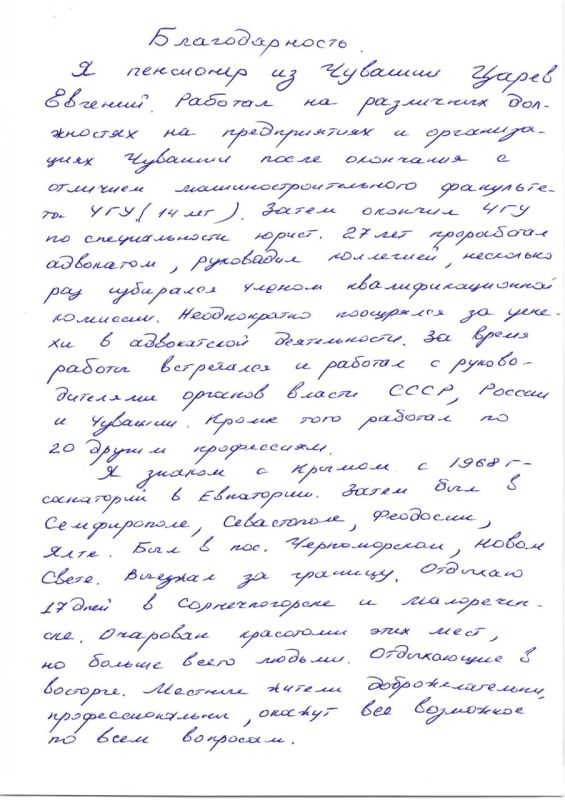 Благодарность.
Я пенсионер из Чувашии Царев
Евгений. Работал на различных дол-
жностях на предприятиях и организа-
циях Чувашии после окончания с
отличием машиностроительного факульте-
та ЧГУ (14 лет). Затем окончил ЧГУ
по специальности юрист. 27 лет проработал
адвокатом, руководил коллегией, несколько
раз избирался членом квалификационной
комиссии. Неоднократно поощрялся за успе-
хи в адвокатской деятельности. За время
работы встречался и работал с руково-
дителями органов власти СССР, России
и Чувашии. Кроме того работал по
20 другим профессиям.
Я знаком с Крымом с 1968 г-
санаторий в Евпатории. Затем был в
Семфирополе, Севастополе, Феодосии,
Ялте. Был в пос. Черноморском, Новом
Свете. Выезжал за границу. Отдыхаю
17 дней в Солнечногорске и Малоречен-
ске. Очарован красотами этих мест,
но больше всего людьми. Отдыхающие в
восторге. Местные жители доброжелательны,
профессиональны, окажут все возможное
по всем вопросам.